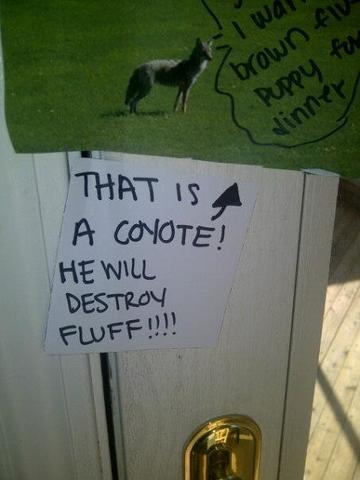 I wan
brown
puppy
dinner
THAT IS
A COYOTE!
HE WILL
DESTROY
FLUFF!!!!